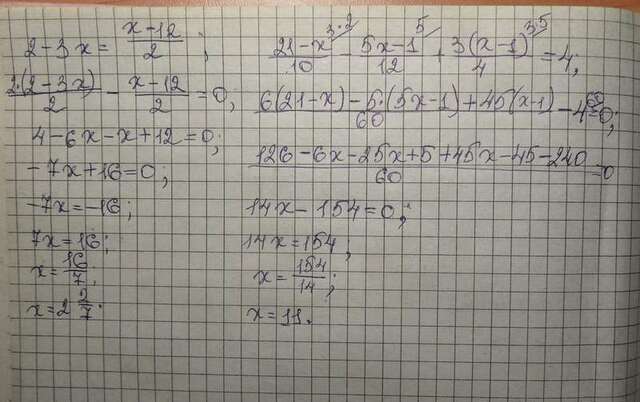 2-3x = (x-12)/2 ;
(2·(2-3x))/2 - (x-12)/2 = 0;
4-6x-x+12=0;
-7x+16=0;
-7x=-16;
7x=16;
x= 16/7;
x=2 2/7.
(21-x)/10 ^3·2 - (5x-1)/12 ^5 + (3(x-1))/4 ^3·5 =4;
(6(21-x)-5·(5x-1)+45(x-1)-4^60)/60 =0;
(126-6x-25x+5+45x-45-240)/60 =0
14x-154=0;
14x=154;
x= 154/14;
x=11.